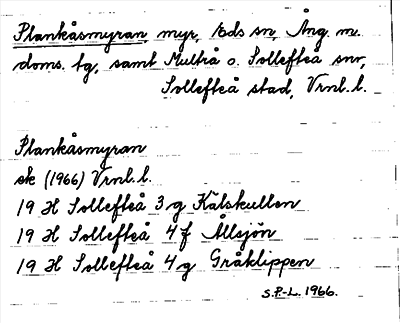 Plankåsmyran, myr, Eds sn, Ång. m.
doms. tg, samt Multrå o. Sollefteå snr,
Sollefteå stad, Vrnl. l.
Plankåsmyran
sk (1966) Vrnl. l.
19 H Sollefteå 3 g Kälskullen
19 H Sollefteå 4 f Ållsjön
19 H Sollefteå 4 g Gråklippen
S.P.-L. 1966.